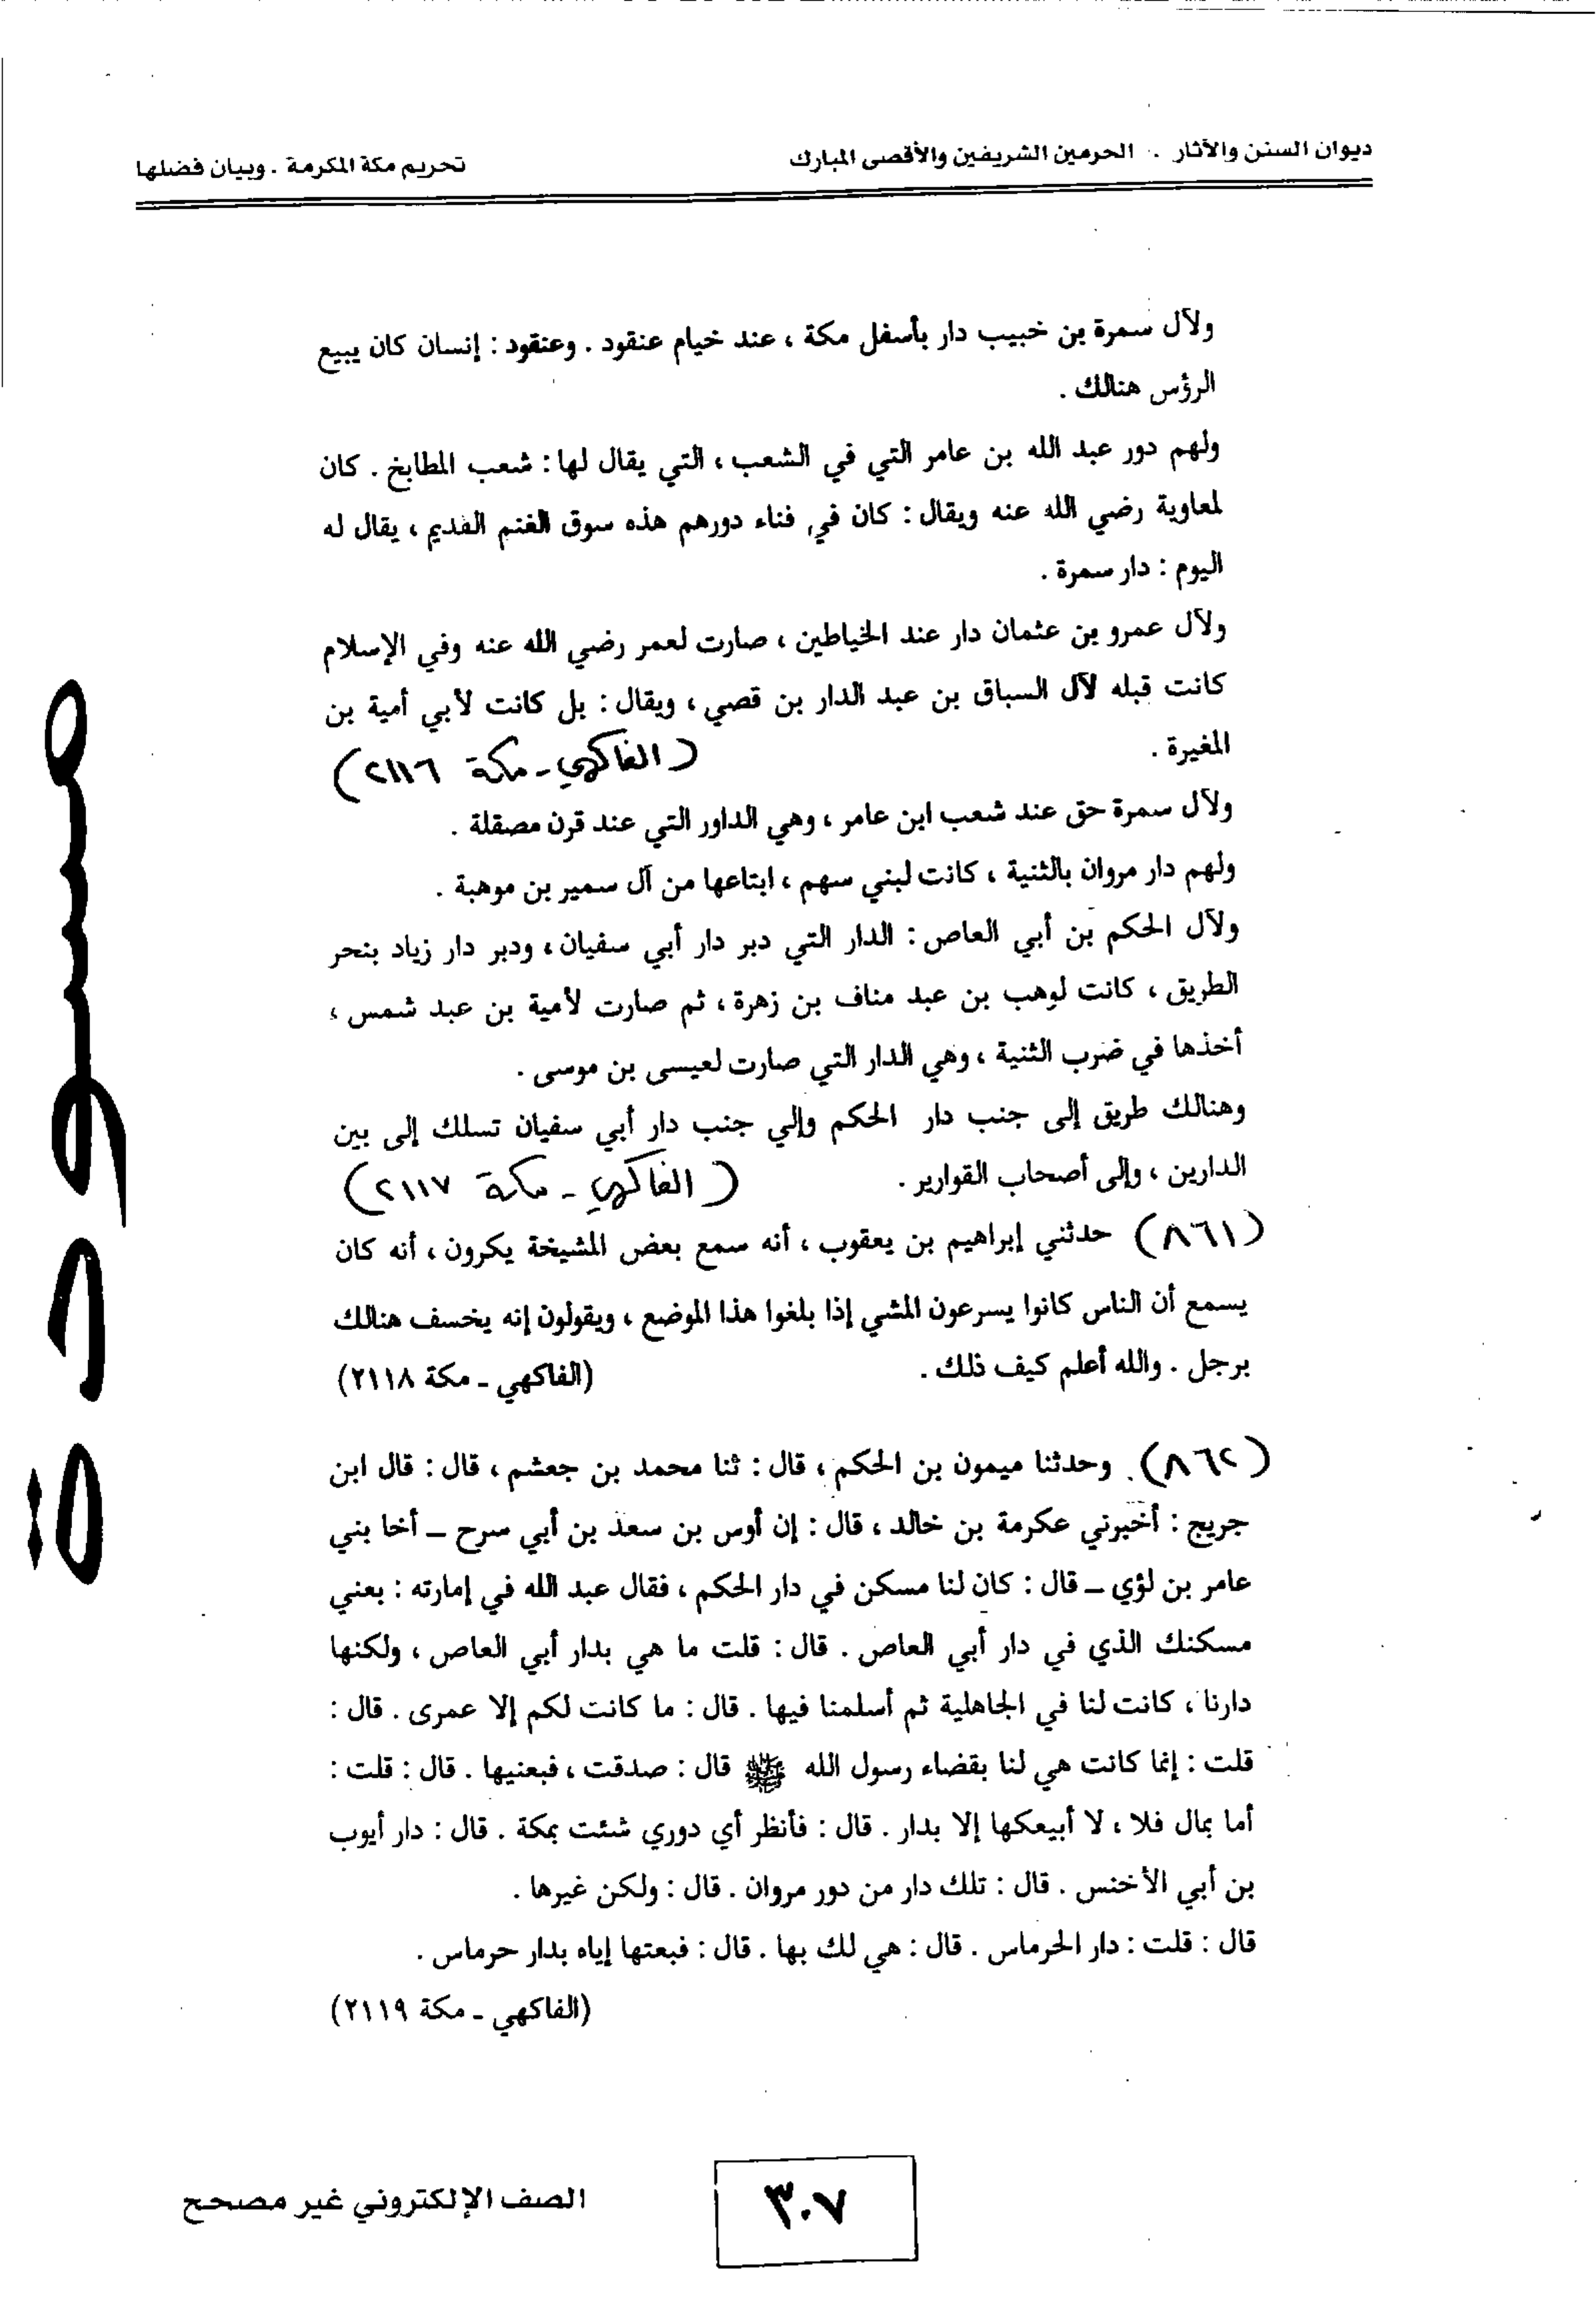 ديوان السنن والآثار . الحرمين الشريفين والأقصى المبارك
تحريم مكة المكرمة . وبيان فضلها
ولآل سمرة بن خبيب دار بأسفل مكة ، عند خيام عنقود . وعنقود : إنسان كان يبيع
الرؤس هنالك .
ولهم دور عبد الله بن عامر التي في الشعب ، التي يقال لها : شعب المطابخ . كان
لمعاوية رضي الله عنه ويقال : كان في فناء دورهم هذه سوق الغنم القديم ، يقال له
اليوم : دار سمرة .
ولآل عمرو بن عثمان دار عند الخياطين ، صارت لعمر رضي الله عنه وفي الإسلام
كانت قبله لآل السباق بن عبد الدار بن قصي ، ويقال : بل كانت لأبي أمية بن
المغيرة .
(الفاكهي - مكة ٢١١٦)
ولآل سمرة حق عند شعب ابن عامر ، وهي الداور التي عند قرن مصقلة .
ولهم دار مروان بالثنية ، كانت لبني سهم ، ابتاعها من آل سمير بن موهبة .
ولآل الحكم بن أبي العاص : الدار التي دبر دار أبي سفيان ، ودبر دار زياد بنحر
الطريق ، كانت لوهب بن عبد مناف بن زهرة ، ثم صارت لأمية بن عبد شمس ،
أخذها في ضرب الثنية ، وهي الدار التي صارت لعيسى بن موسى .
وهنالك طريق إلى جنب دار الحكم وإلي جنب دار أبي سفيان تسلك إلى بين
الدارين ، وإلى أصحاب القوارير .
(الفاكهي - مكة ٢١١٧)
(٨٦١) حدثني إبراهيم بن يعقوب ، أنه سمع بعض المشيخة يكرون ، أنه كان
يسمع أن الناس كانوا يسرعون المشي إذا بلغوا هذا الموضع ، ويقولون إنه يخسف هنالك
برجل . والله أعلم كيف ذلك .
(الفاكهي - مكة ٢١١٨)
(٨٦٢) . وحدثنا ميمون بن الحكم ، قال : ثنا محمد بن جعشم ، قال : قال ابن
جريج : أخبرني عكرمة بن خالد ، قال : إن أوس بن سعد بن أبي سرح – أخا بني
عامر بن لؤي – قال : كان لنا مسكن في دار الحكم ، فقال عبد الله في إمارته : بعني
مسكنك الذي في دار أبي العاص . قال : قلت ما هي بدار أبي العاص ، ولكنها
دارنا ، كانت لنا في الجاهلية ثم أسلمنا فيها . قال : ما كانت لكم إلا عمرى . قال :
قلت : إنما كانت هي لنا بقضاء رسول الله ﷺ قال : صدقت ، فبعنيها . قال : قلت :
أما بمال فلا ، لا أبيعكها إلا بدار . قال : فأنظر أي دوري شئت بمكة . قال : دار أيوب
بن أبي الأخنس . قال : تلك دار من دور مروان . قال : ولكن غيرها .
قال : قلت : دار الحرماس . قال : هي لك بها . قال : فبعتها إياه بدار حرماس .
(الفاكهي - مكة ٢١١٩)
مسودة
٣٠٧
الصف الإلكتروني غير مصحح